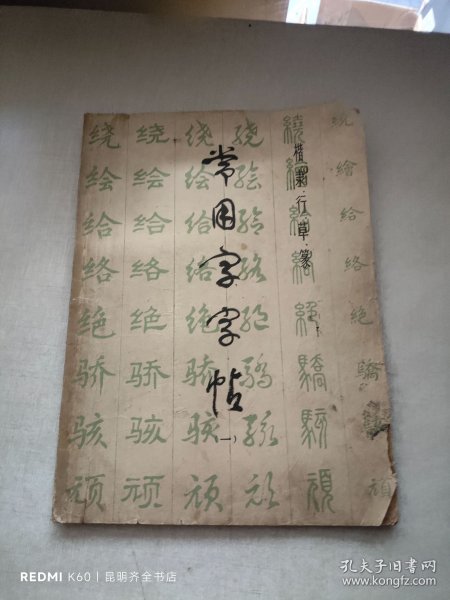 常用字字帖
(一)
楷·隶·行·草·篆
绕 绕 绕 绕 繞 繞
绘 绘 绘 绘 繪 繪
给 给 给 给 給 給
络 络 络 络 絡 絡
绝 绝 绝 绝 絕 絶
骄 骄 骄 驕 驕 驕
骇 骇 骇 骇 駭
顽 顽 顽 顽 頑 頑
REDMI K60 | 昆明齐全书店
孔夫子旧书网
www.kongfz.com